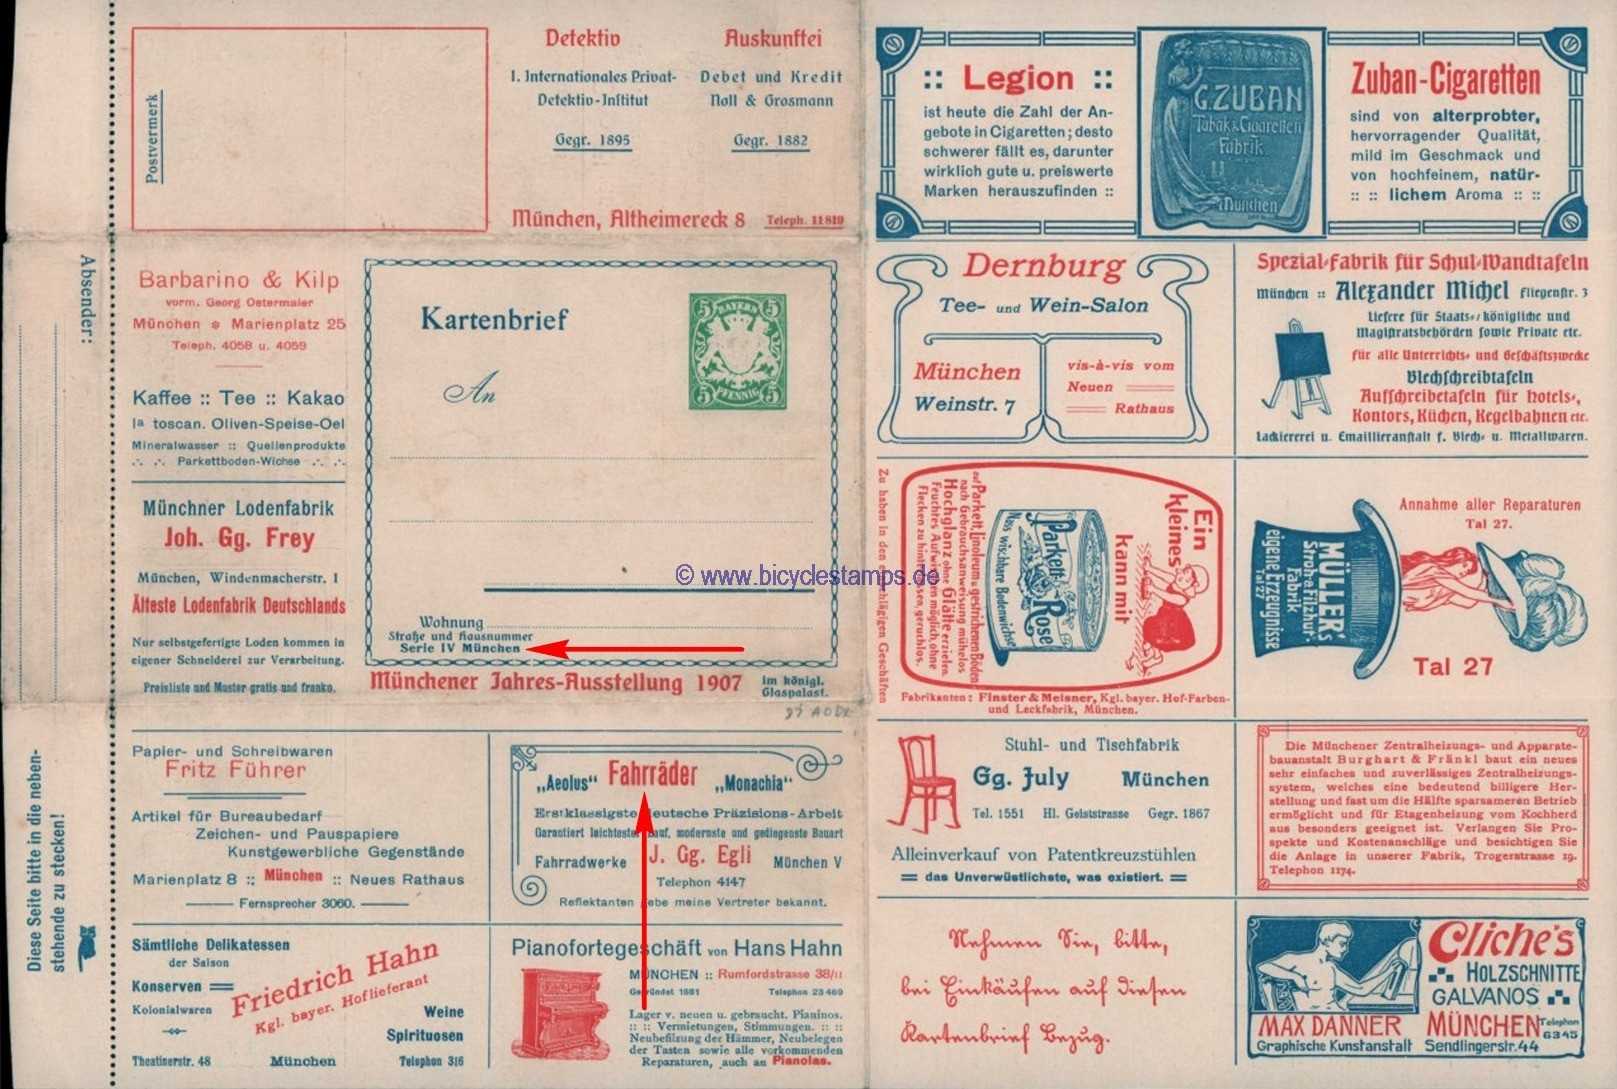 Postvermerk
Detektiv
I. Internationales Privat-
Detektiv-Institut
Gegr. 1895
Auskunftei
Debet und Kredit
Noll & Grosmann
Gegr. 1882
München, Altheimereck 8 Teleph. 11810
Absender:
Barbarino & Kilp
vorm. Georg Ostermaier
München * Marienplatz 25
Teleph. 4058 u. 4059
Kaffee :: Tee :: Kakao
Ia toscan. Oliven-Speise-Oel
Mineralwasser :: Quellenprodukte
Parkettboden-Wichse
Münchner Lodenfabrik
Joh. Gg. Frey
München, Windenmacherstr. 1
Älteste Lodenfabrik Deutschlands
Nur selbstgefertigte Loden kommen in
eigener Schneiderei zur Verarbeitung.
Preisliste und Muster gratis und franko.
Kartenbrief
An
5 BAYERN 5
5 PFENNIG 5
© www.bicyclestamps.de
Wohnung
Straße und Hausnummer
Serie IV München
Münchener Jahres-Ausstellung 1907 im königl.
Glaspalast.
Diese Seite bitte in die neben-
stehende zu stecken!
Papier- und Schreibwaren
Fritz Führer
Artikel für Bureaubedarf
Zeichen- und Pauspapiere
Kunstgewerbliche Gegenstände
Marienplatz 8 :: München :: Neues Rathaus
Fernsprecher 3060.
„Aeolus“ Fahrräder „Monachia“
Erstklassigste deutsche Präzisions-Arbeit
Garantiert leichtester Lauf, modernste und gediegenste Bauart
Fahrradwerke J. Gg. Egli München V
Telephon 4147
Reflektanten gebe meine Vertreter bekannt.
Sämtliche Delikatessen
der Saison
Konserven
Kolonialwaren
Friedrich Hahn
Kgl. bayer. Hoflieferant
Weine
Spirituosen
Theatinerstr. 48 München Telephon 316
Pianofortegeschäft von Hans Hahn
MÜNCHEN :: Rumfordstrasse 38/II
Gegründet 1881 Telephon 23469
Lager v. neuen u. gebraucht. Pianinos.
:: :: Vermietungen, Stimmungen. :: ::
Neubefilzung der Hämmer, Neubelegen
der Tasten sowie alle vorkommenden
Reparaturen, auch an Pianolas.
:: Legion ::
ist heute die Zahl der An-
gebote in Cigaretten; desto
schwerer fällt es, darunter
wirklich gute u. preiswerte
Marken herauszufinden ::
G.ZUBAN
Tabak & Cigaretten
Fabrik
München
Zuban-Cigaretten
sind von alterprobter,
hervorragender Qualität,
mild im Geschmack und
von hochfeinem, natür-
:: :: lichem Aroma :: ::
Dernburg
Tee- und Wein-Salon
München
Weinstr. 7
vis-à-vis vom
Neuen
Rathaus
Spezial-Fabrik für Schul-Wandtafeln
München :: Alexander Michel Fliegenstr. 3
Liefere für Staats-, königliche und
Magistratsbehörden sowie Private etc.
für alle Unterrichts- und Geschäftszwecke
Blechschreibtafeln
Aufschreibetafeln für Hotels-,
Kontors, Küchen, Kegelbahnen etc.
Lackiererei u. Emaillieranstalt f. Blech- u. Metallwaren.
Zu haben in den einschlägigen Geschäften
Ein
kleines
kann mit
Parkett-Rose
Nass wischbare Bodenwichse
auf Parkett, Linoleum u. gestrichenem Boden
nach Gebrauchsanweisung mühelos
Hochglanz ohne Glätte erzielen.
Feuchtes Aufwischen möglich, ohne
Flecken zu hinterlassen, geruchlos.
Fabrikanten: Finster & Meisner, Kgl. bayer. Hof-Farben-
und Lackfabrik, München.
Annahme aller Reparaturen
Tal 27.
MÜLLER's
Stroh- & Filzhut-
Fabrik
eigene Erzeugnisse
Tal 27
Tal 27
Stuhl- und Tischfabrik
Gg. July München
Tel. 1551 Hl. Geiststrasse Gegr. 1867
Alleinverkauf von Patentkreuzstühlen
das Unverwüstlichste, was existiert.
Die Münchener Zentralheizungs- und Apparate-
bauanstalt Burghart & Fränkl baut ein neues
sehr einfaches und zuverlässiges Zentralheizungs-
system, welches eine bedeutend billigere Her-
stellung und fast um die Hälfte sparsameren Betrieb
ermöglicht und für Etagenheizung vom Kochherd
aus besonders geeignet ist. Verlangen Sie Pro-
spekte und Kostenanschläge und besichtigen Sie
die Anlage in unserer Fabrik, Trogerstrasse 19.
Telephon 1174.
Nehmen Sie, bitte,
bei Einkäufen auf diesen
Kartenbrief Bezug.
Cliche's
HOLZSCHNITTE
GALVANOS
MAX DANNER MÜNCHEN Telephon
6345
Graphische Kunstanstalt Sendlingerstr. 44